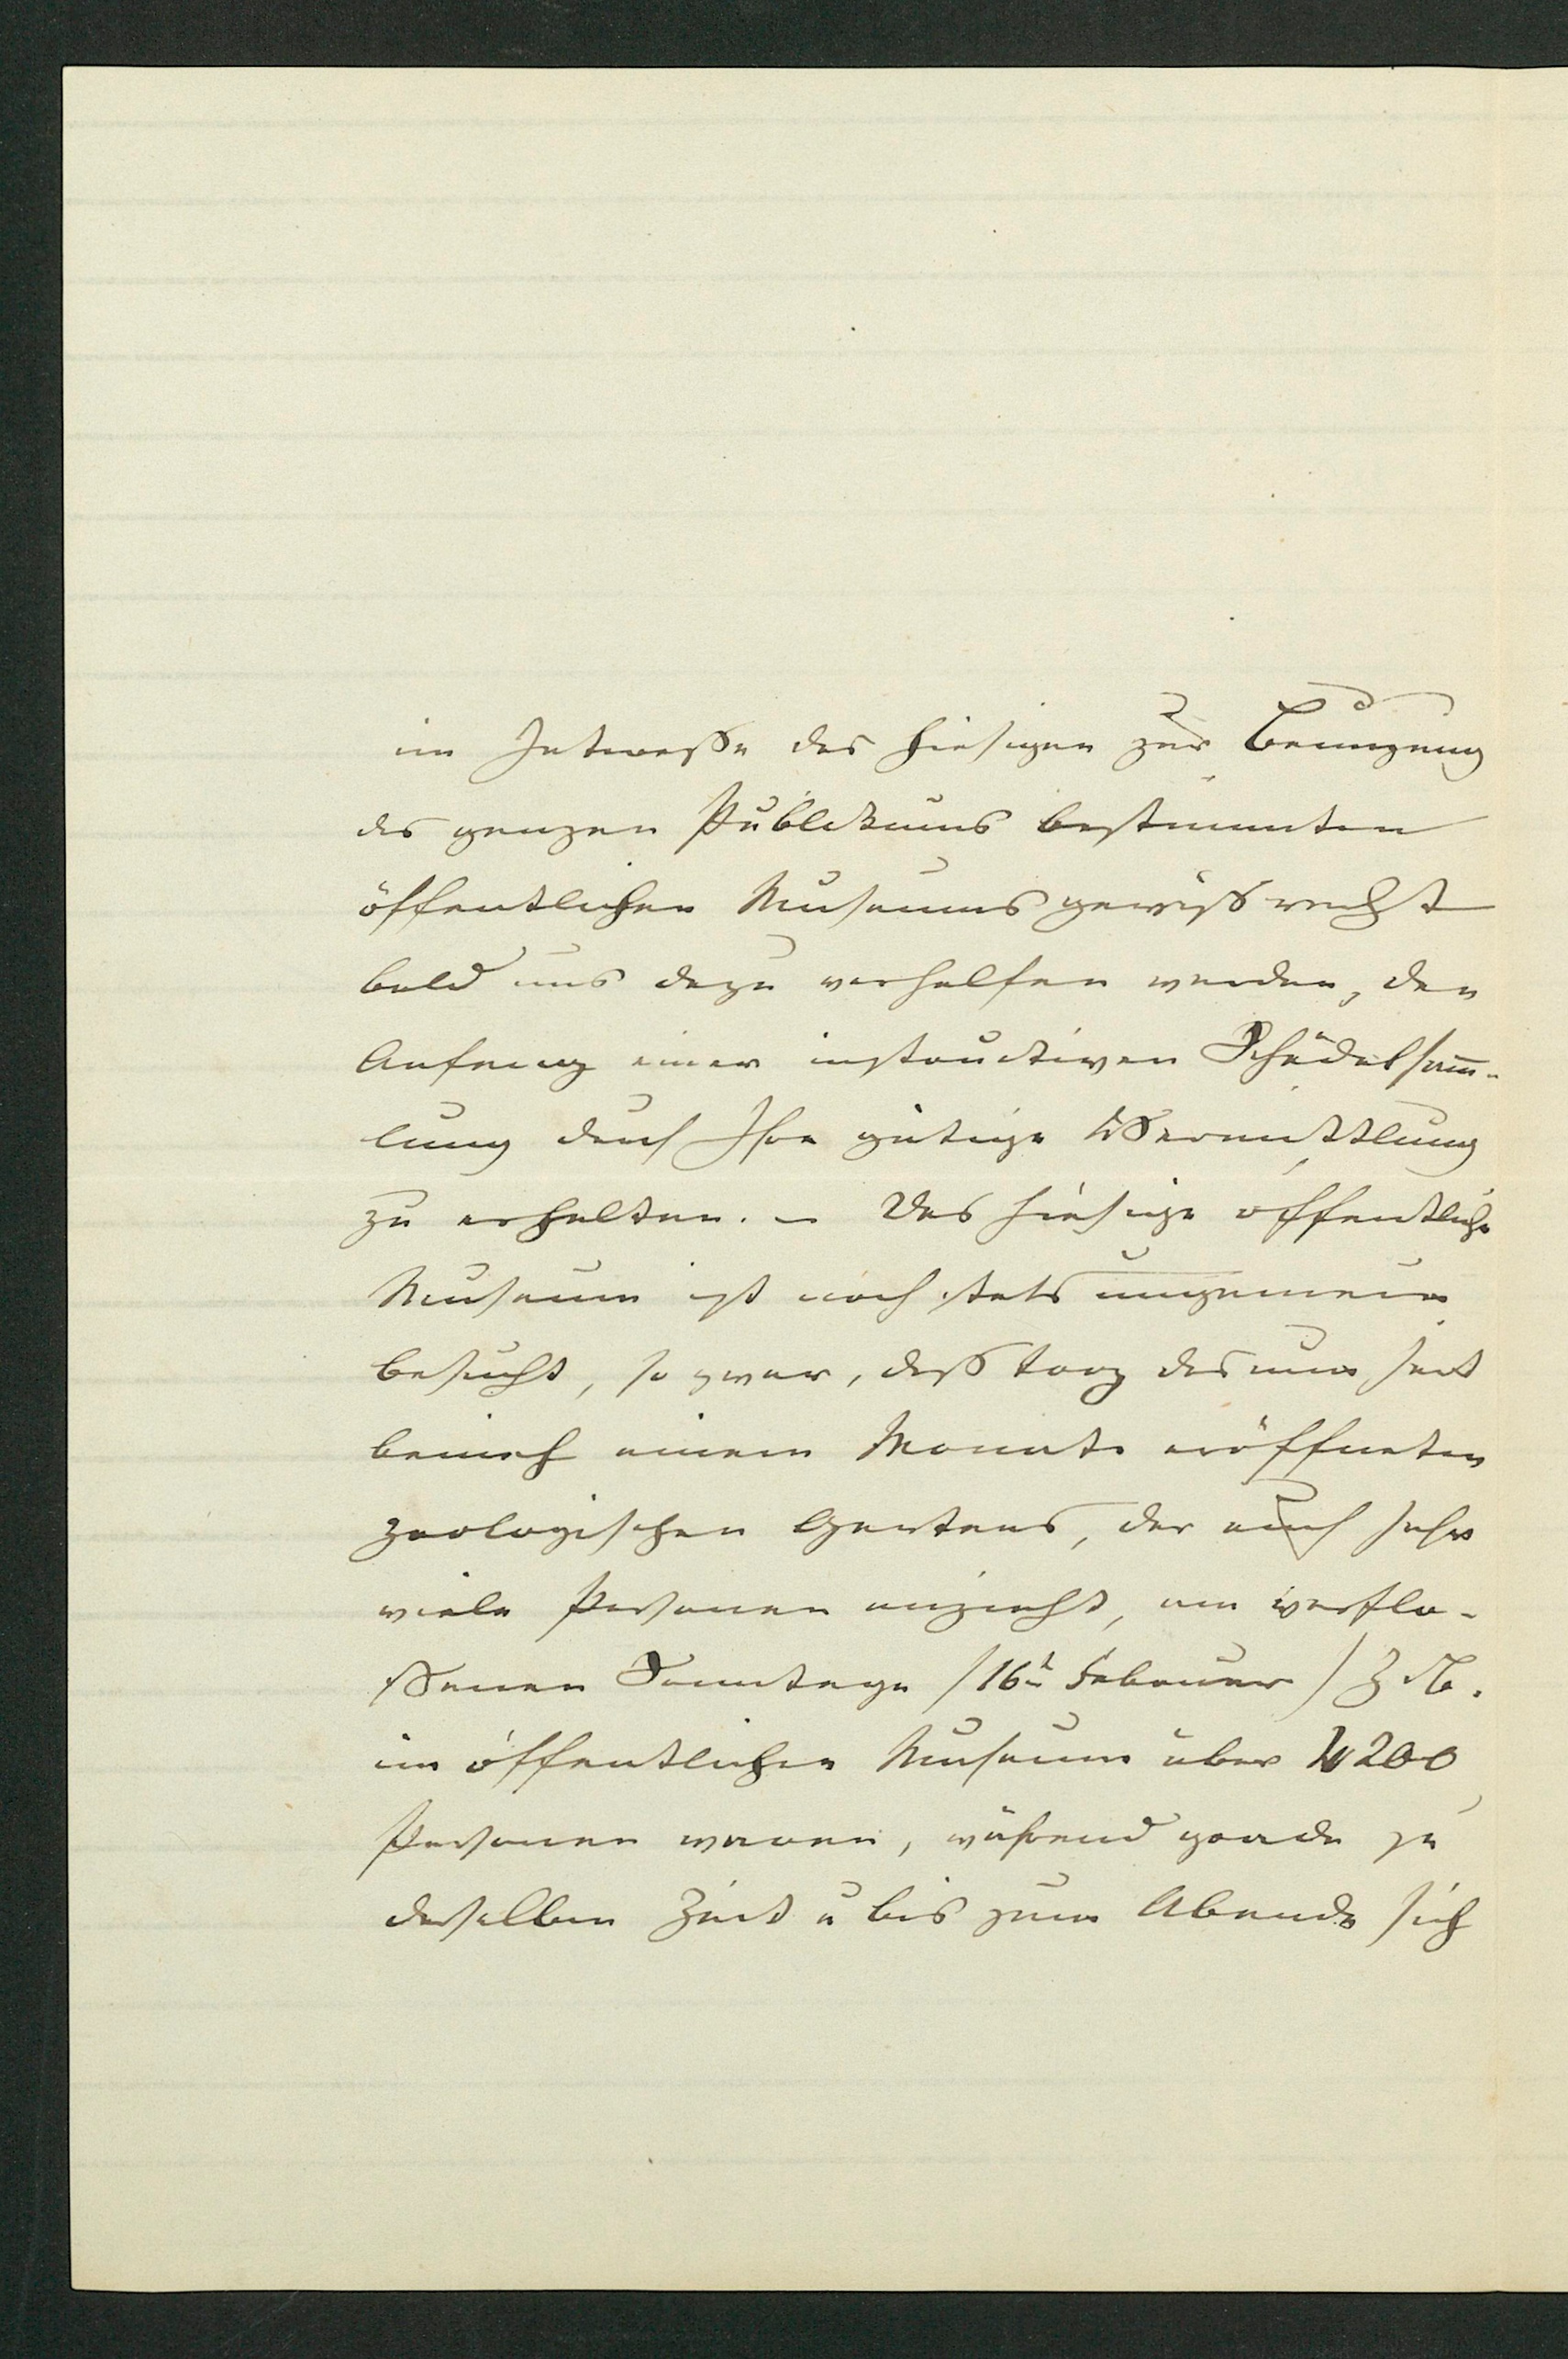 im Interesse des hiesigen zur Benuzung
des ganzen Publikums bestimmten
öffentlichen Museums gewiß recht
bald uns dazu verhelfen werden, den
Anfang einer instructiven Schädelsamm-
lung durch Ihre gütige Vermittlung
zu erhalten. – Das hiesige öffentliche
Museum ist noch stets ungemein
besucht, so zwar, daß troz des nun seit
beinah einem Monate eröffneten
zoologischen Gartens, der auch sehr
viele Personen anzieht, am verflo-
ßenen Sonntage /16t Februar/ z. B.
im öffentlichen Museum über 1200
Personen waren, während grade zu
derselben Zeit u bis zum Abende sich